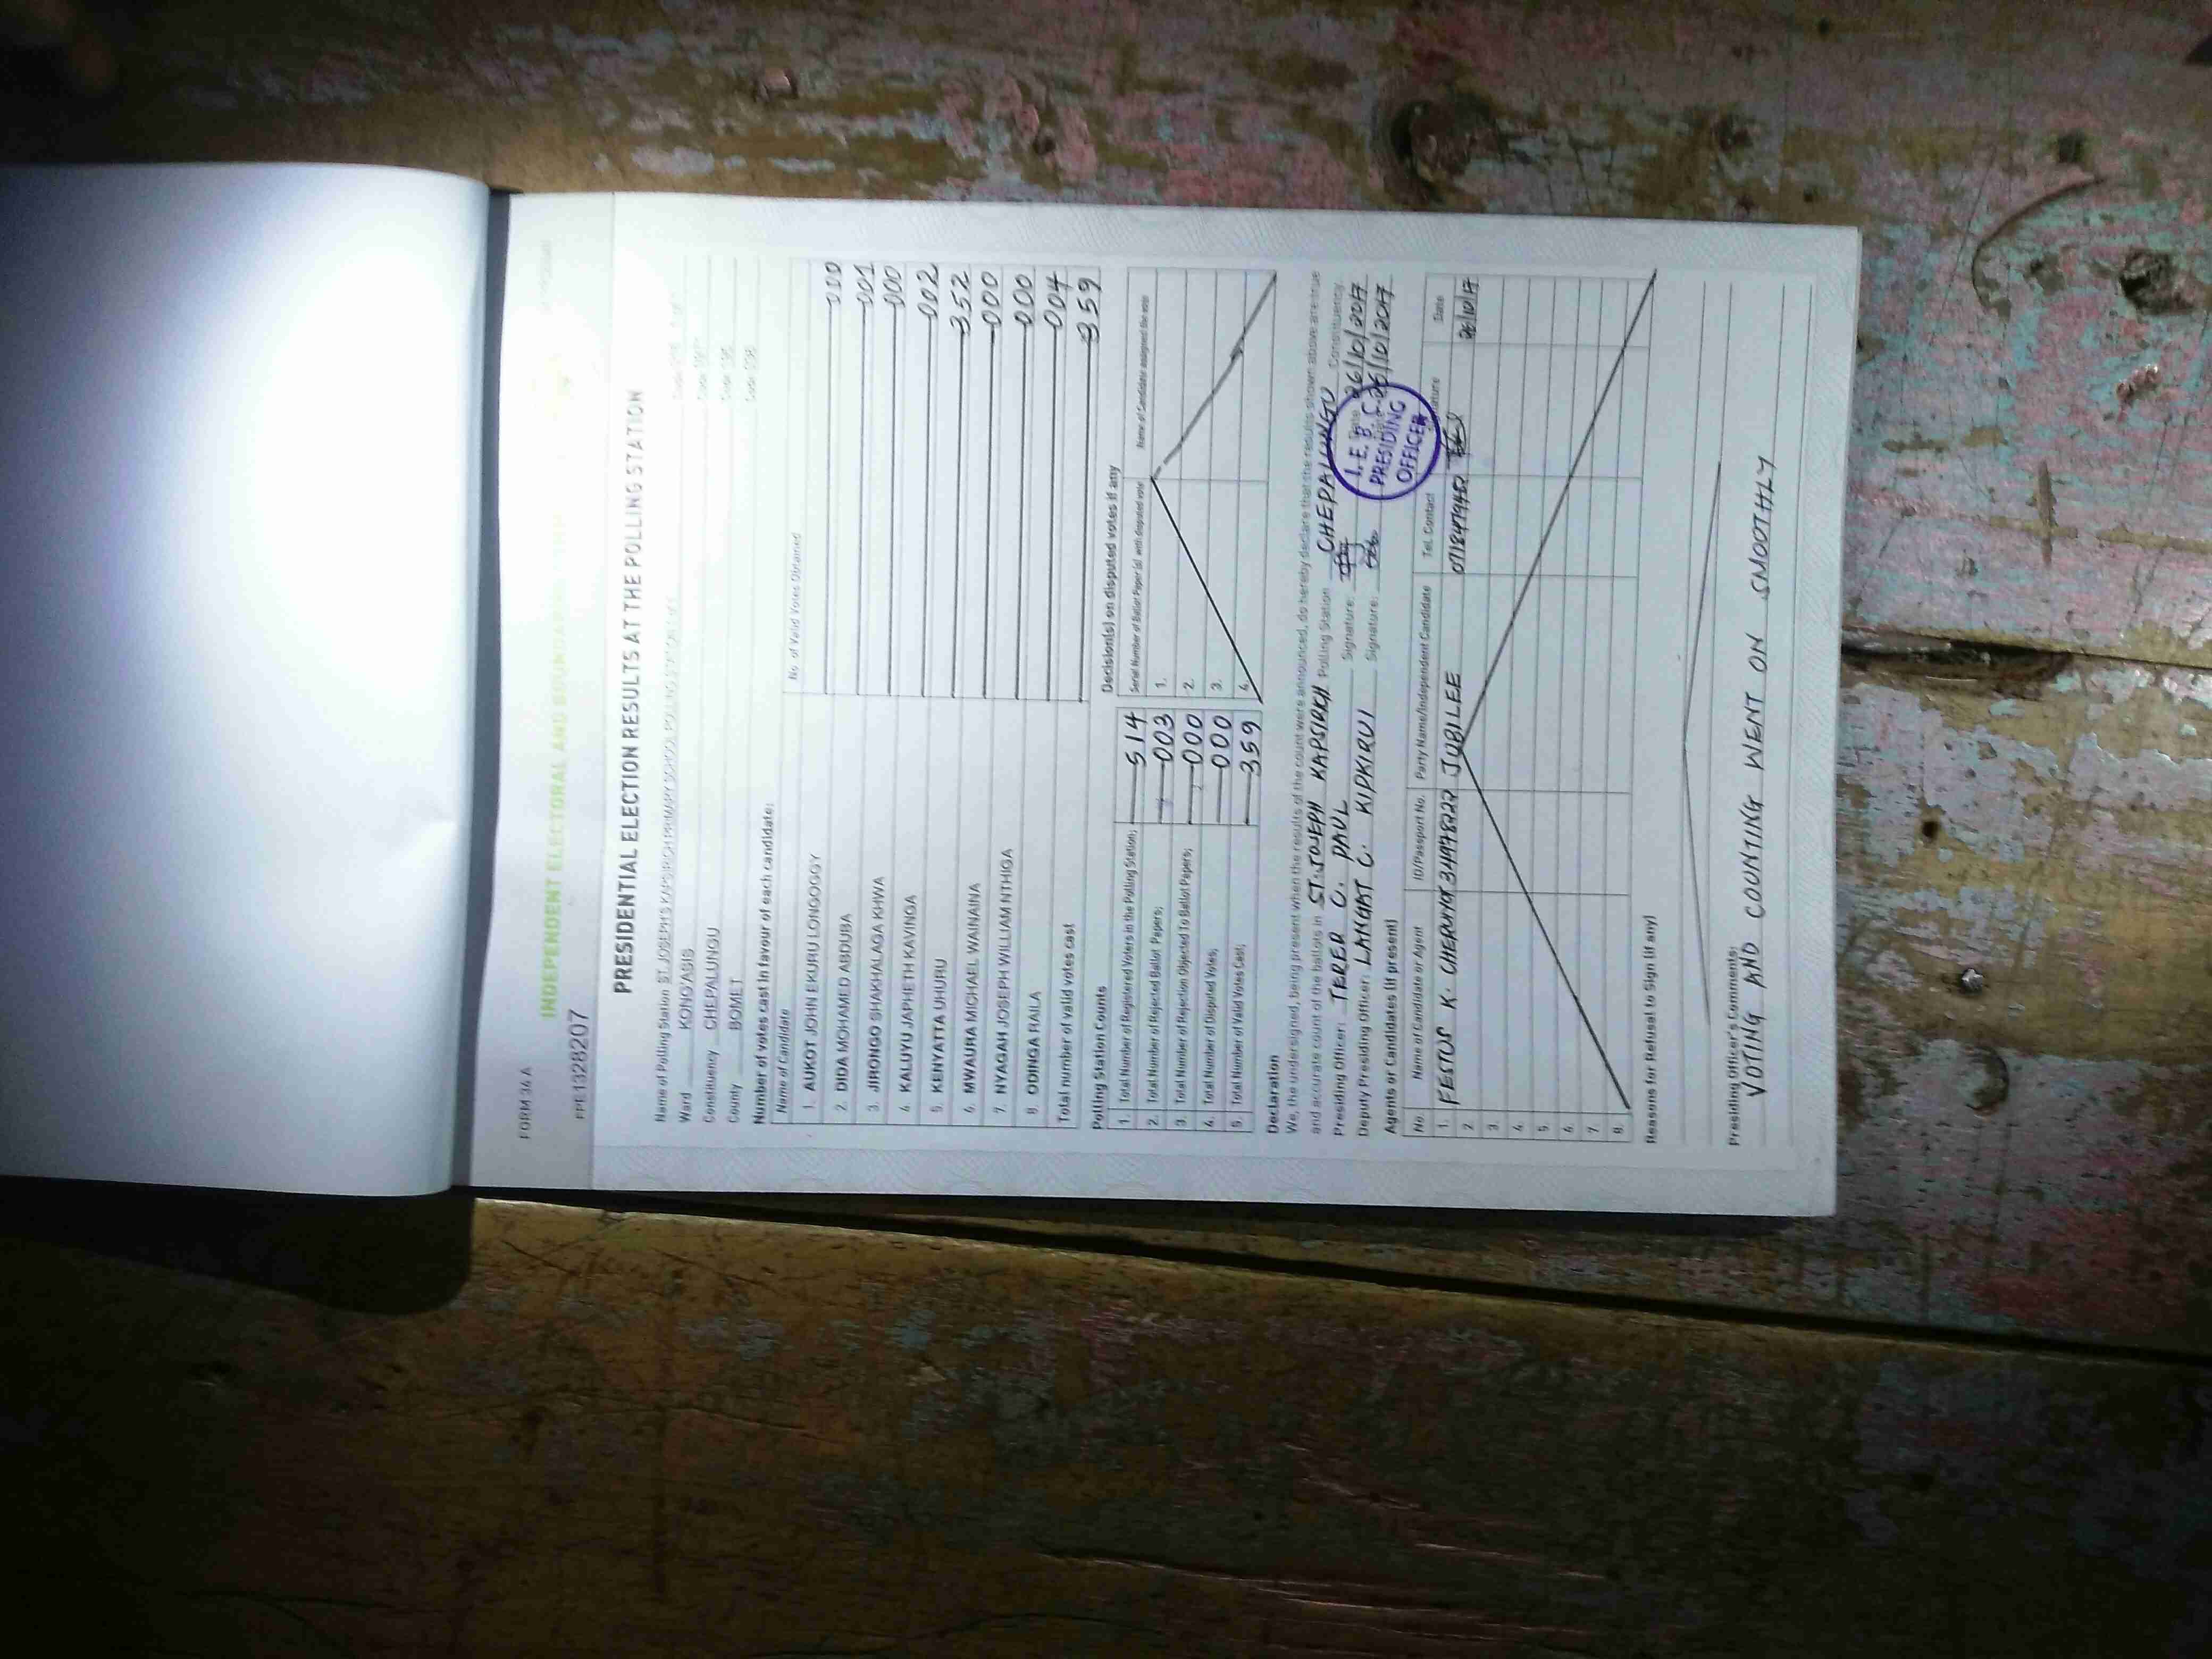 FORM 34 A
INDEPENDENT ELECTORAL AND BOUNDARIES
PPE 1328207
PRESIDENTIAL ELECTION RESULTS AT THE POLLING STATION
Name of Polling Station ST.JOSEPH'S KAPSIROH PRIMARY SCHOOL POLLING STATION
Ward KONG'ASIS
Constituency CHEPALUNGU
County BOMET
Number of votes cast in favour of each candidate:
Name of Candidate No. of Valid Votes Obtained
1. AUKOT JOHN EKURU LONGOGGY 000
2. DIDA MOHAMED ABDUBA 001
3. JIRONGO SHAKHALAGA KHWA 000
4. KALUYU JAPHETH KAVINGA 002
5. KENYATTA UHURU 352
6. MWAURA MICHAEL WAINAINA 000
7. NYAGAH JOSEPH WILLIAM NTHIGA 000
8. ODINGA RAILA 004
Total number of valid votes cast 359
Polling Station Counts
1. Total Number of Registered Voters in the Polling Station; 514
2. Total Number of Rejected Ballot Papers; 003
3. Total Number of Rejection Objected To Ballot Papers; 000
4. Total Number of Disputed Votes; 000
5. Total Number of Valid Votes Cast; 359
Decision(s) on disputed votes if any
Serial Number of Ballot Paper (s) with disputed vote Name of Candidate assigned the vote
1.
2.
3.
4.
Declaration
We, the undersigned, being present when the results of the count were announced, do hereby declare that the results shown above are true
and accurate count of the ballots in ST.JOSEPH KAPSIROH Polling Station CHEPALUNGU Constituency.
Presiding Officer: TERER C. PAUL Signature: Date 26/10/2017
Deputy Presiding Officer: LANGAT C. KIPKIRUI Signature: 26/10/2017
I.E.B.C
PRESIDING
OFFICER
Agents or Candidates (if present)
No. Name of Candidate or Agent ID/Passport No. Party Name/Independent Candidate Tel. Contact Signature Date
1. FESTUS K. JUBILEE 26/10/17
2.
3.
4.
5.
6.
7.
8.
Reasons for Refusal to Sign (if any)
Presiding Officer's Comments:
VOTING AND COUNTING WENT ON SMOOTHLY